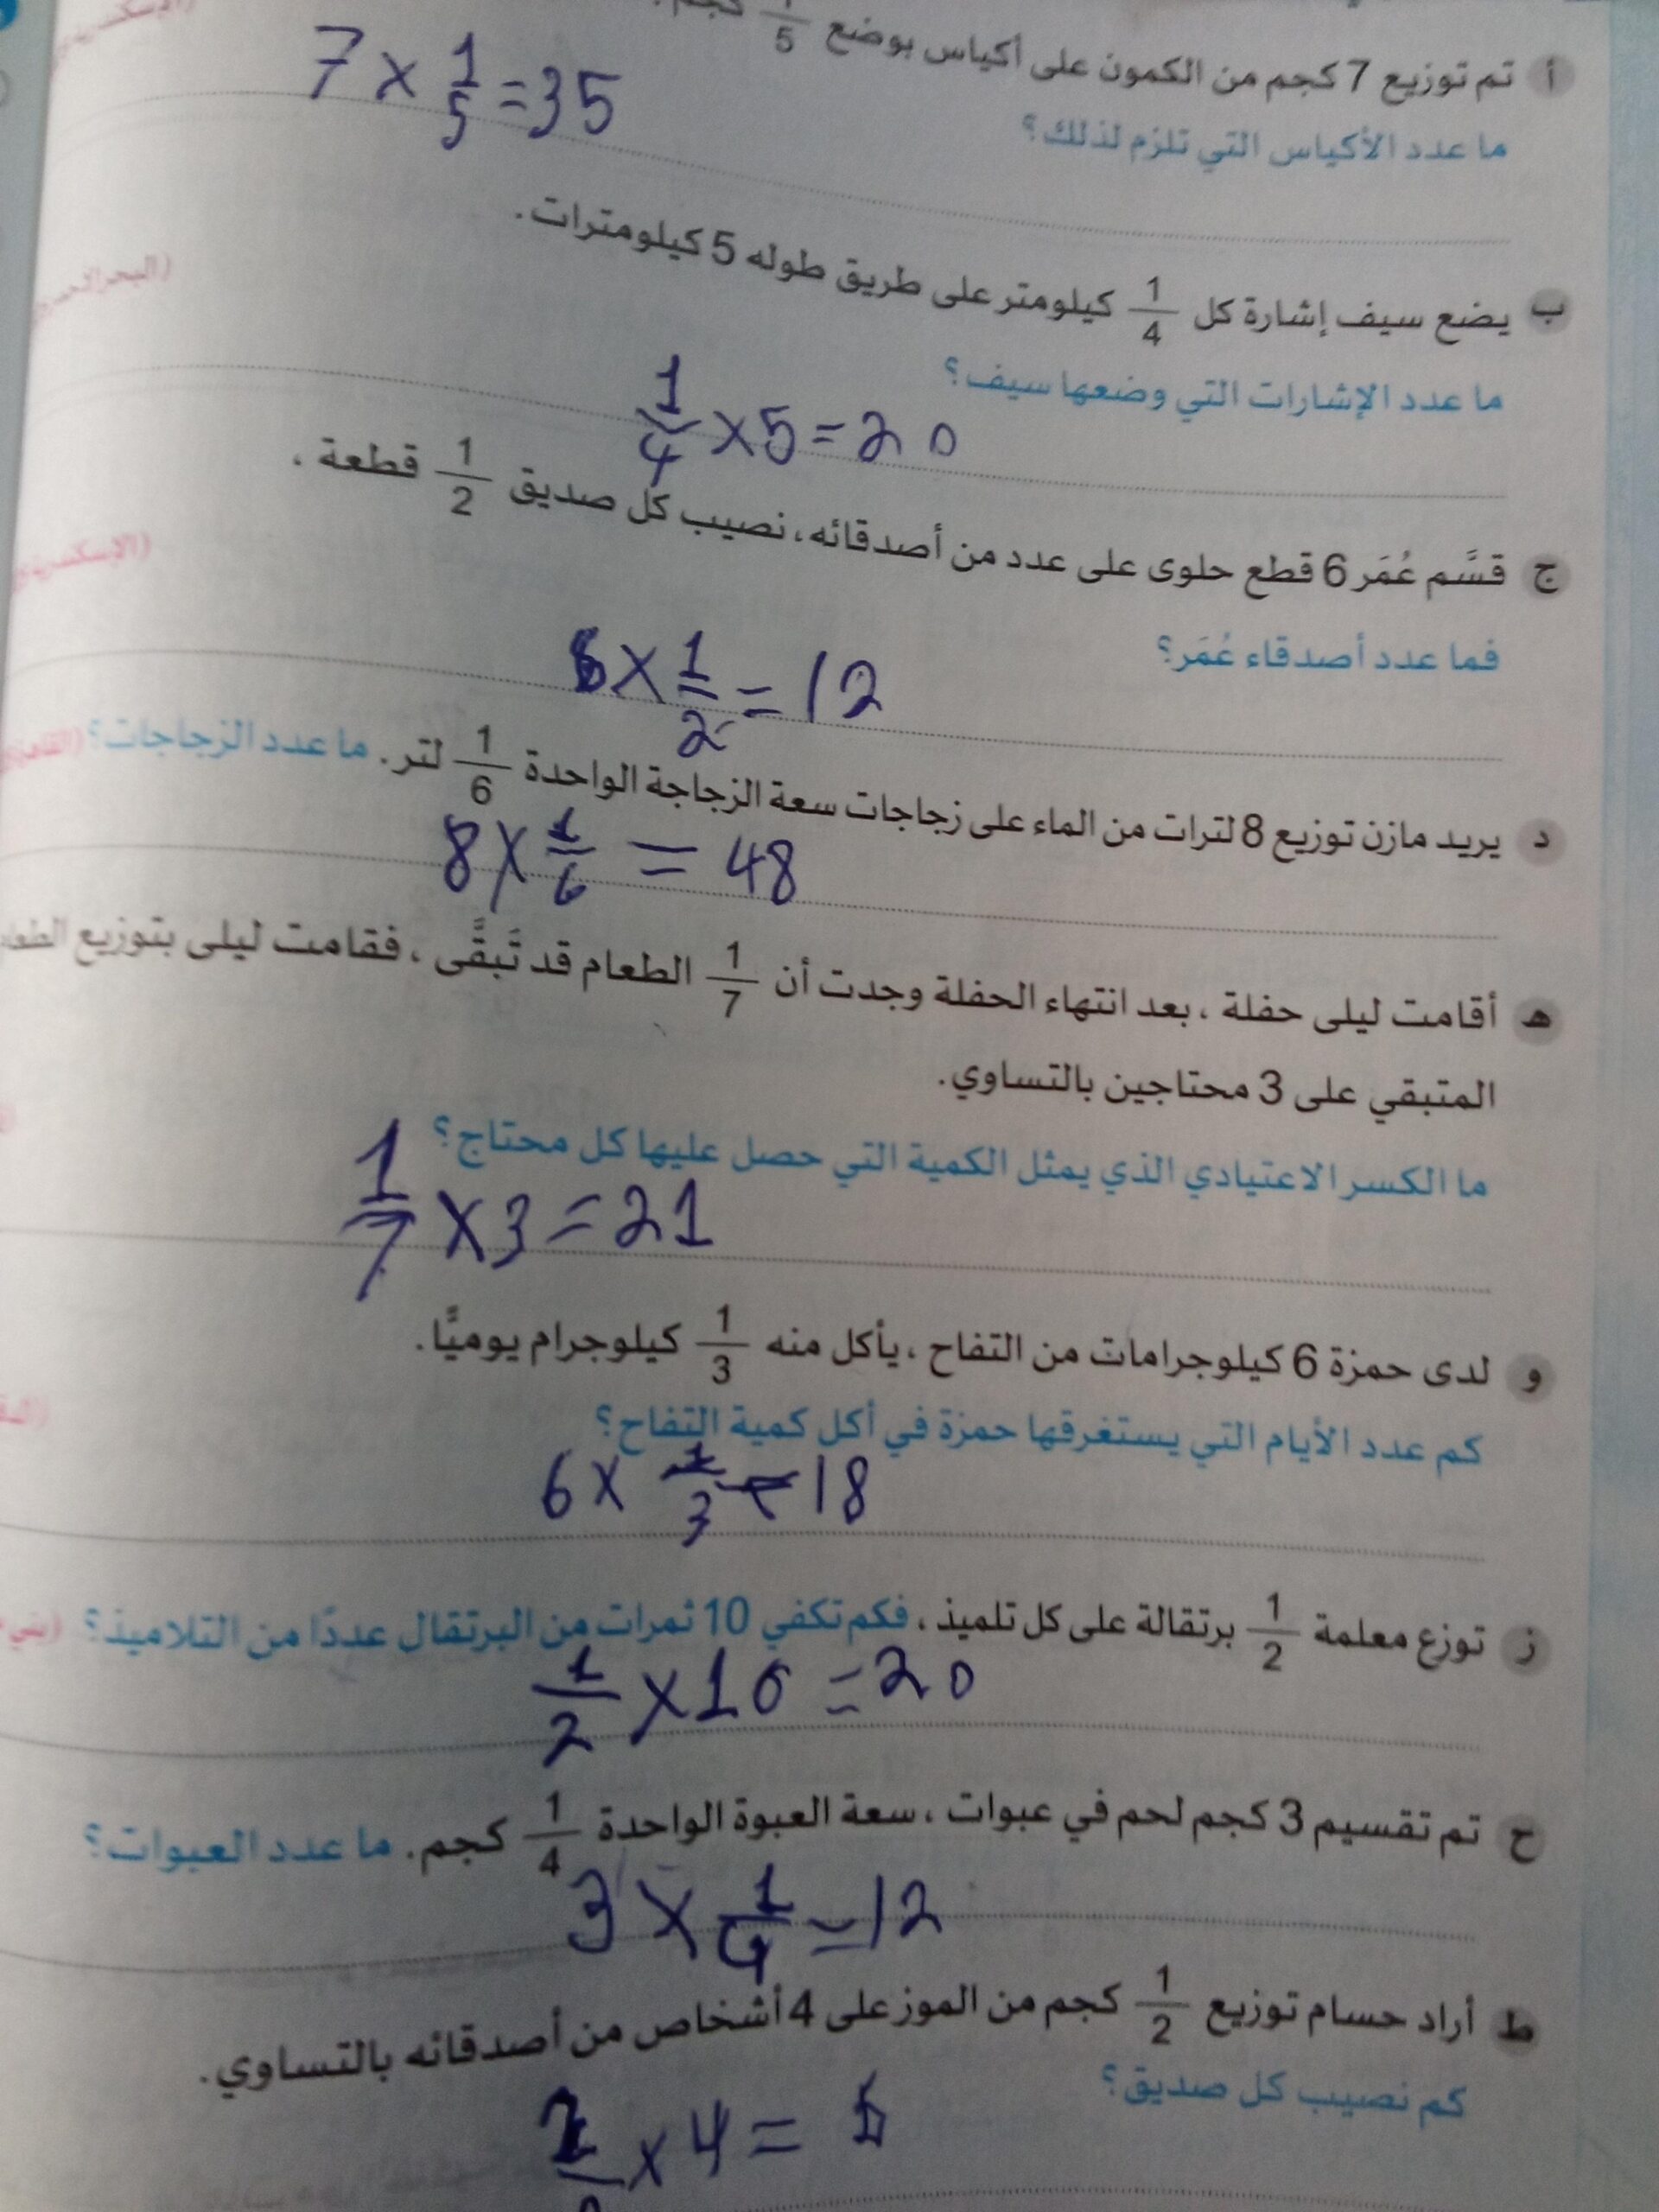 أ تم توزيع 7 كجم من الكمون على أكياس بوضع 1/5 كجم
7 × 1/5 = 35
ما عدد الأكياس التي تلزم لذلك؟
ب يضع سيف إشارة كل 1/4 كيلومتر على طريق طوله 5 كيلومترات.
ما عدد الإشارات التي وضعها سيف؟
1/4 × 5 = 20
ج قسَّم عُمَر 6 قطع حلوى على عدد من أصدقائه، نصيب كل صديق 1/2 قطعة،
فما عدد أصدقاء عُمَر؟
6 × 1/2 = 12
د يريد مازن توزيع 8 لترات من الماء على زجاجات سعة الزجاجة الواحدة 1/6 لتر. ما عدد الزجاجات؟
8 × 1/6 = 48
هـ أقامت ليلى حفلة، بعد انتهاء الحفلة وجدت أن 1/7 الطعام قد تَبقَّى، فقامت ليلى بتوزيع
المتبقي على 3 محتاجين بالتساوي.
ما الكسر الاعتيادي الذي يمثل الكمية التي حصل عليها كل محتاج؟
1/7 × 3 = 21
و لدى حمزة 6 كيلوجرامات من التفاح، يأكل منه 1/3 كيلوجرام يوميًّا.
كم عدد الأيام التي يستغرقها حمزة في أكل كمية التفاح؟
6 × 1/3 = 18
ز توزع معلمة 1/2 برتقالة على كل تلميذ، فكم تكفي 10 ثمرات من البرتقال عددًا من التلاميذ؟
1/2 × 10 = 20
ح تم تقسيم 3 كجم لحم في عبوات، سعة العبوة الواحدة 1/4 كجم. ما عدد العبوات؟
3 × 1/4 = 12
ط أراد حسام توزيع 1/2 كجم من الموز على 4 أشخاص من أصدقائه بالتساوي.
كم نصيب كل صديق؟
× 4 =